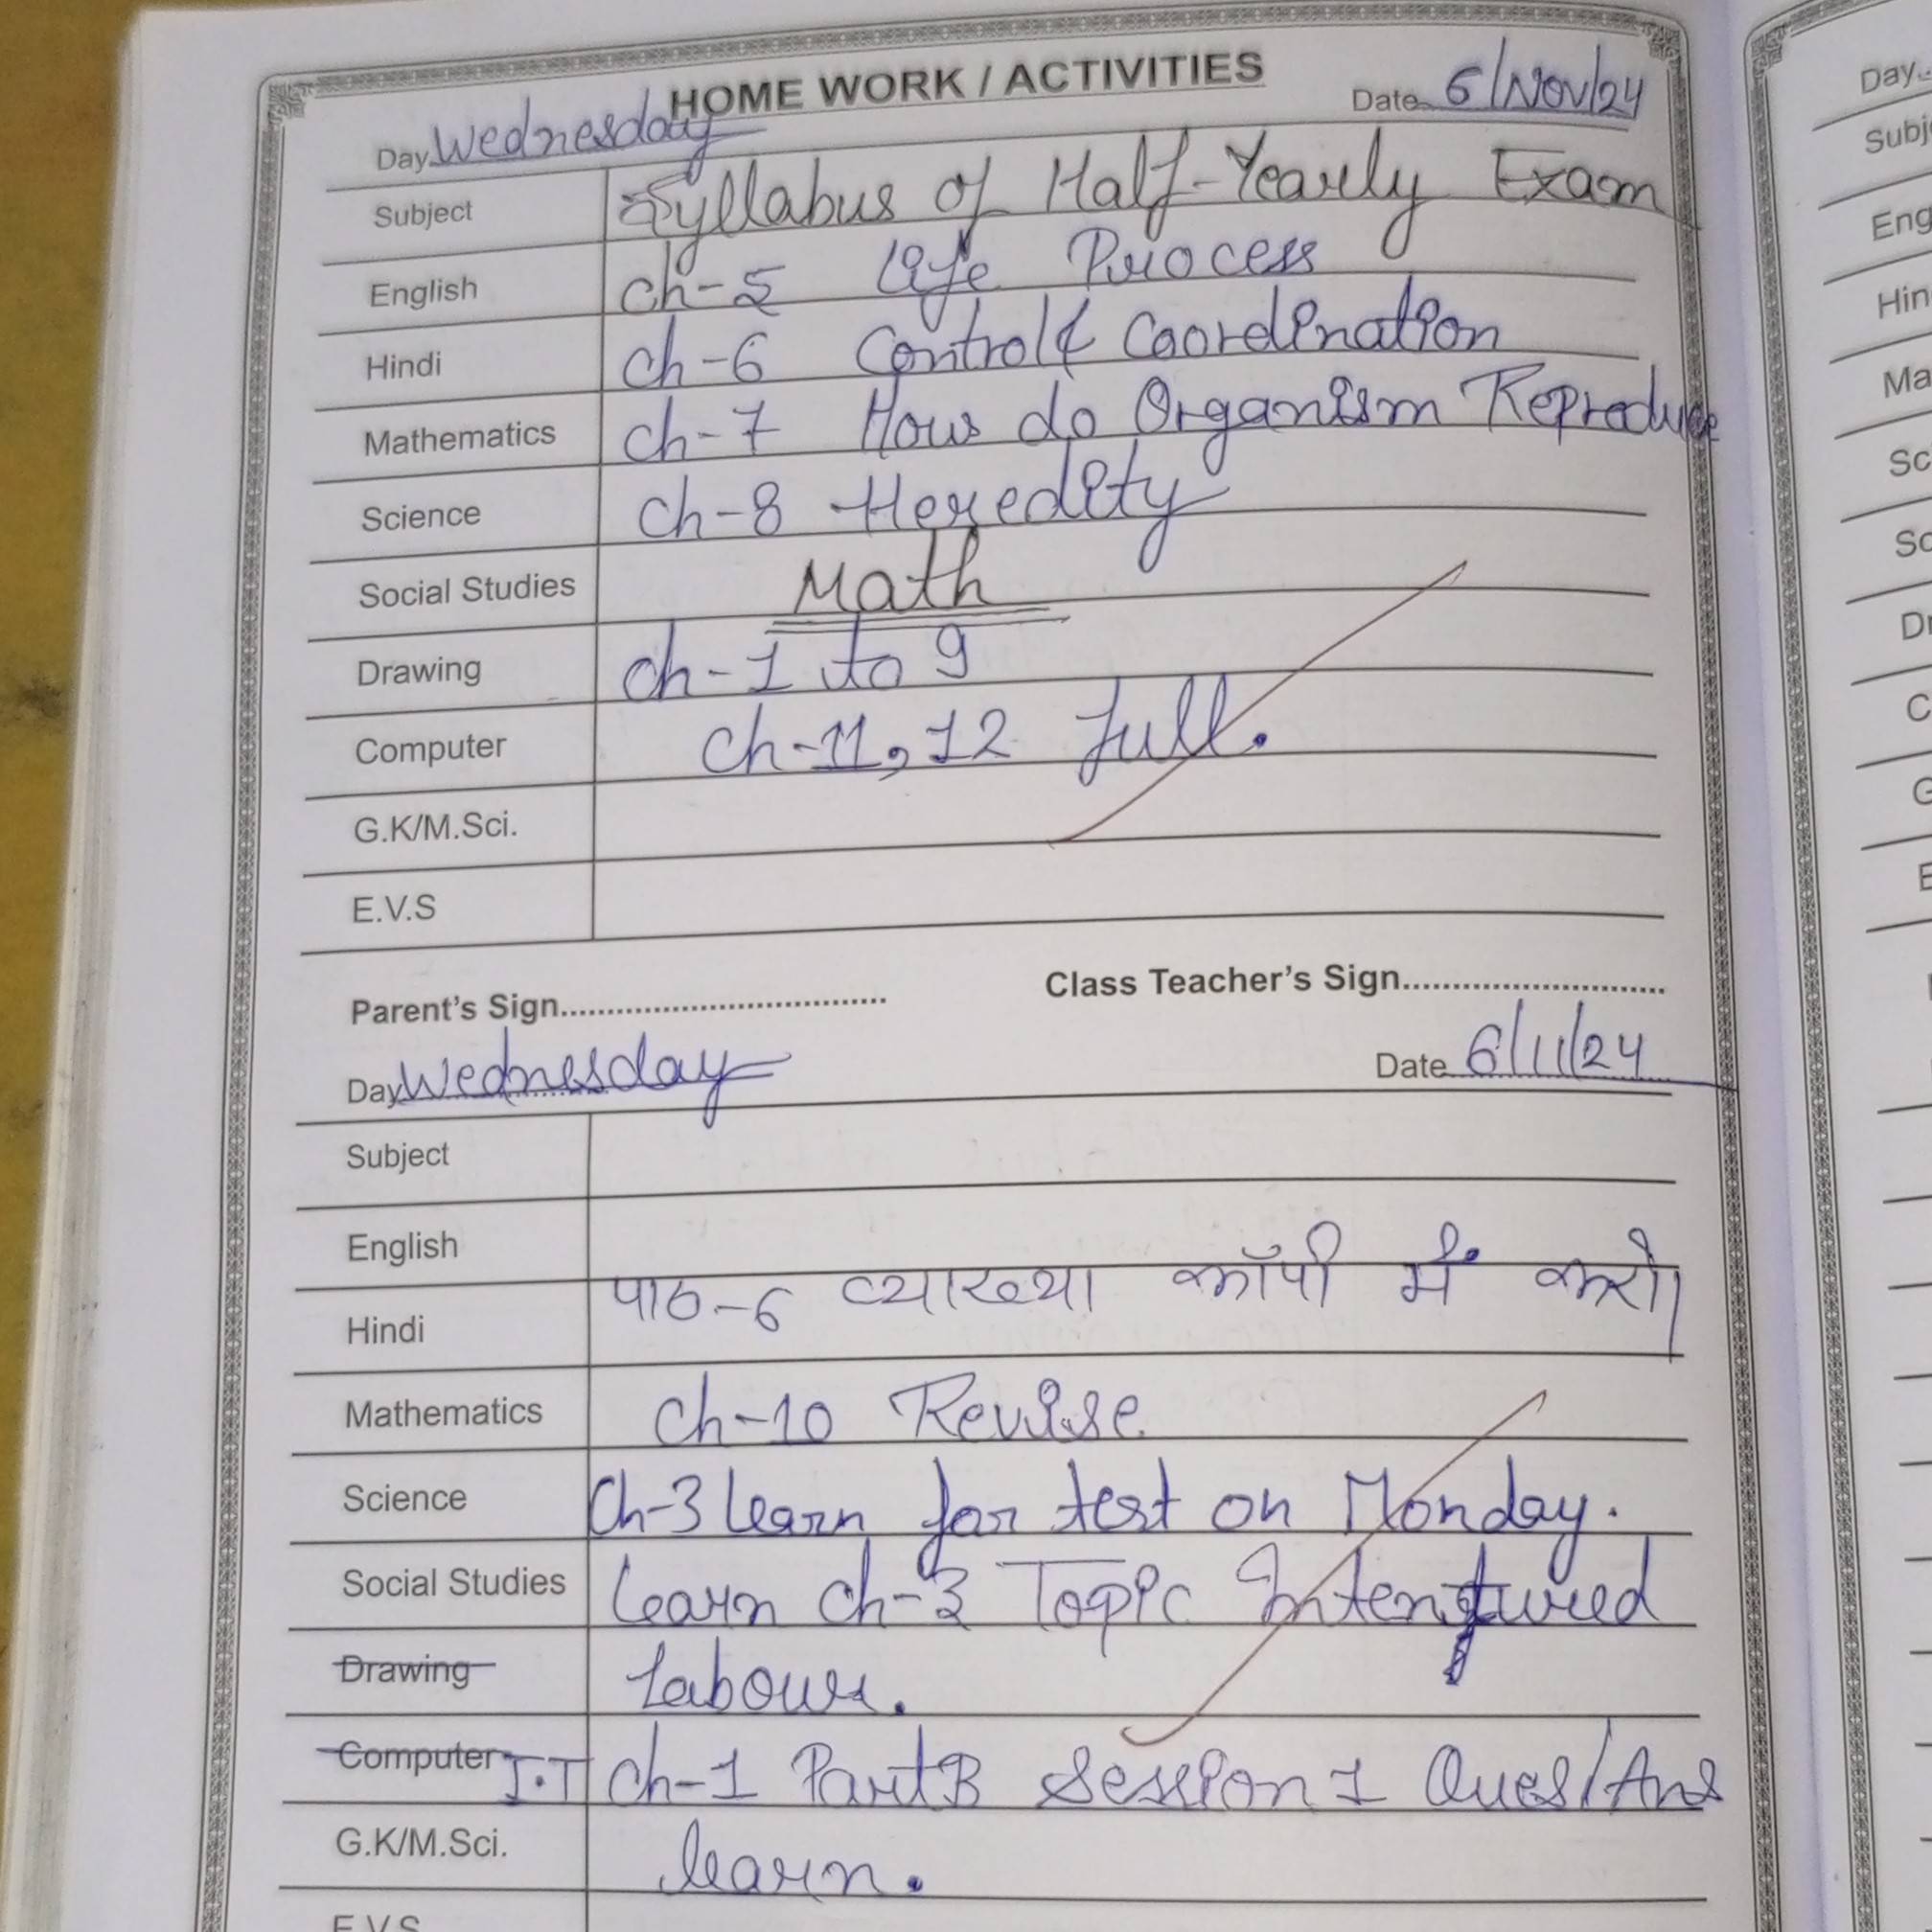 HOME WORK / ACTIVITIES
Day Wednesday Date 6/Nov/24
Subject Syllabus of Half-Yearly Exam
English ch-5 Life Process
Hindi ch-6 Control & Coordination
Mathematics ch-7 How do Organism Reproduce
Science ch-8 Heredity
Social Studies Math
Drawing ch-1 to 9
Computer ch-11, 12 full.
G.K/M.Sci.
E.V.S
Parent's Sign.............................. Class Teacher's Sign..........................
Day Wednesday Date 6/11/24
Subject
English
Hindi पाठ-6 व्याख्या कॉपी में करो।
Mathematics Ch-10 Revise
Science Ch-3 learn for test on Monday.
Social Studies learn ch-3 Topic Intentured
Drawing Labour.
Computer I.T ch-1 Part B Session 1 Ques/Ans
G.K/M.Sci. learn.
E.V.S
Day
Subj
Eng
Hin
Ma
Sc
So
Dr
C
G
E